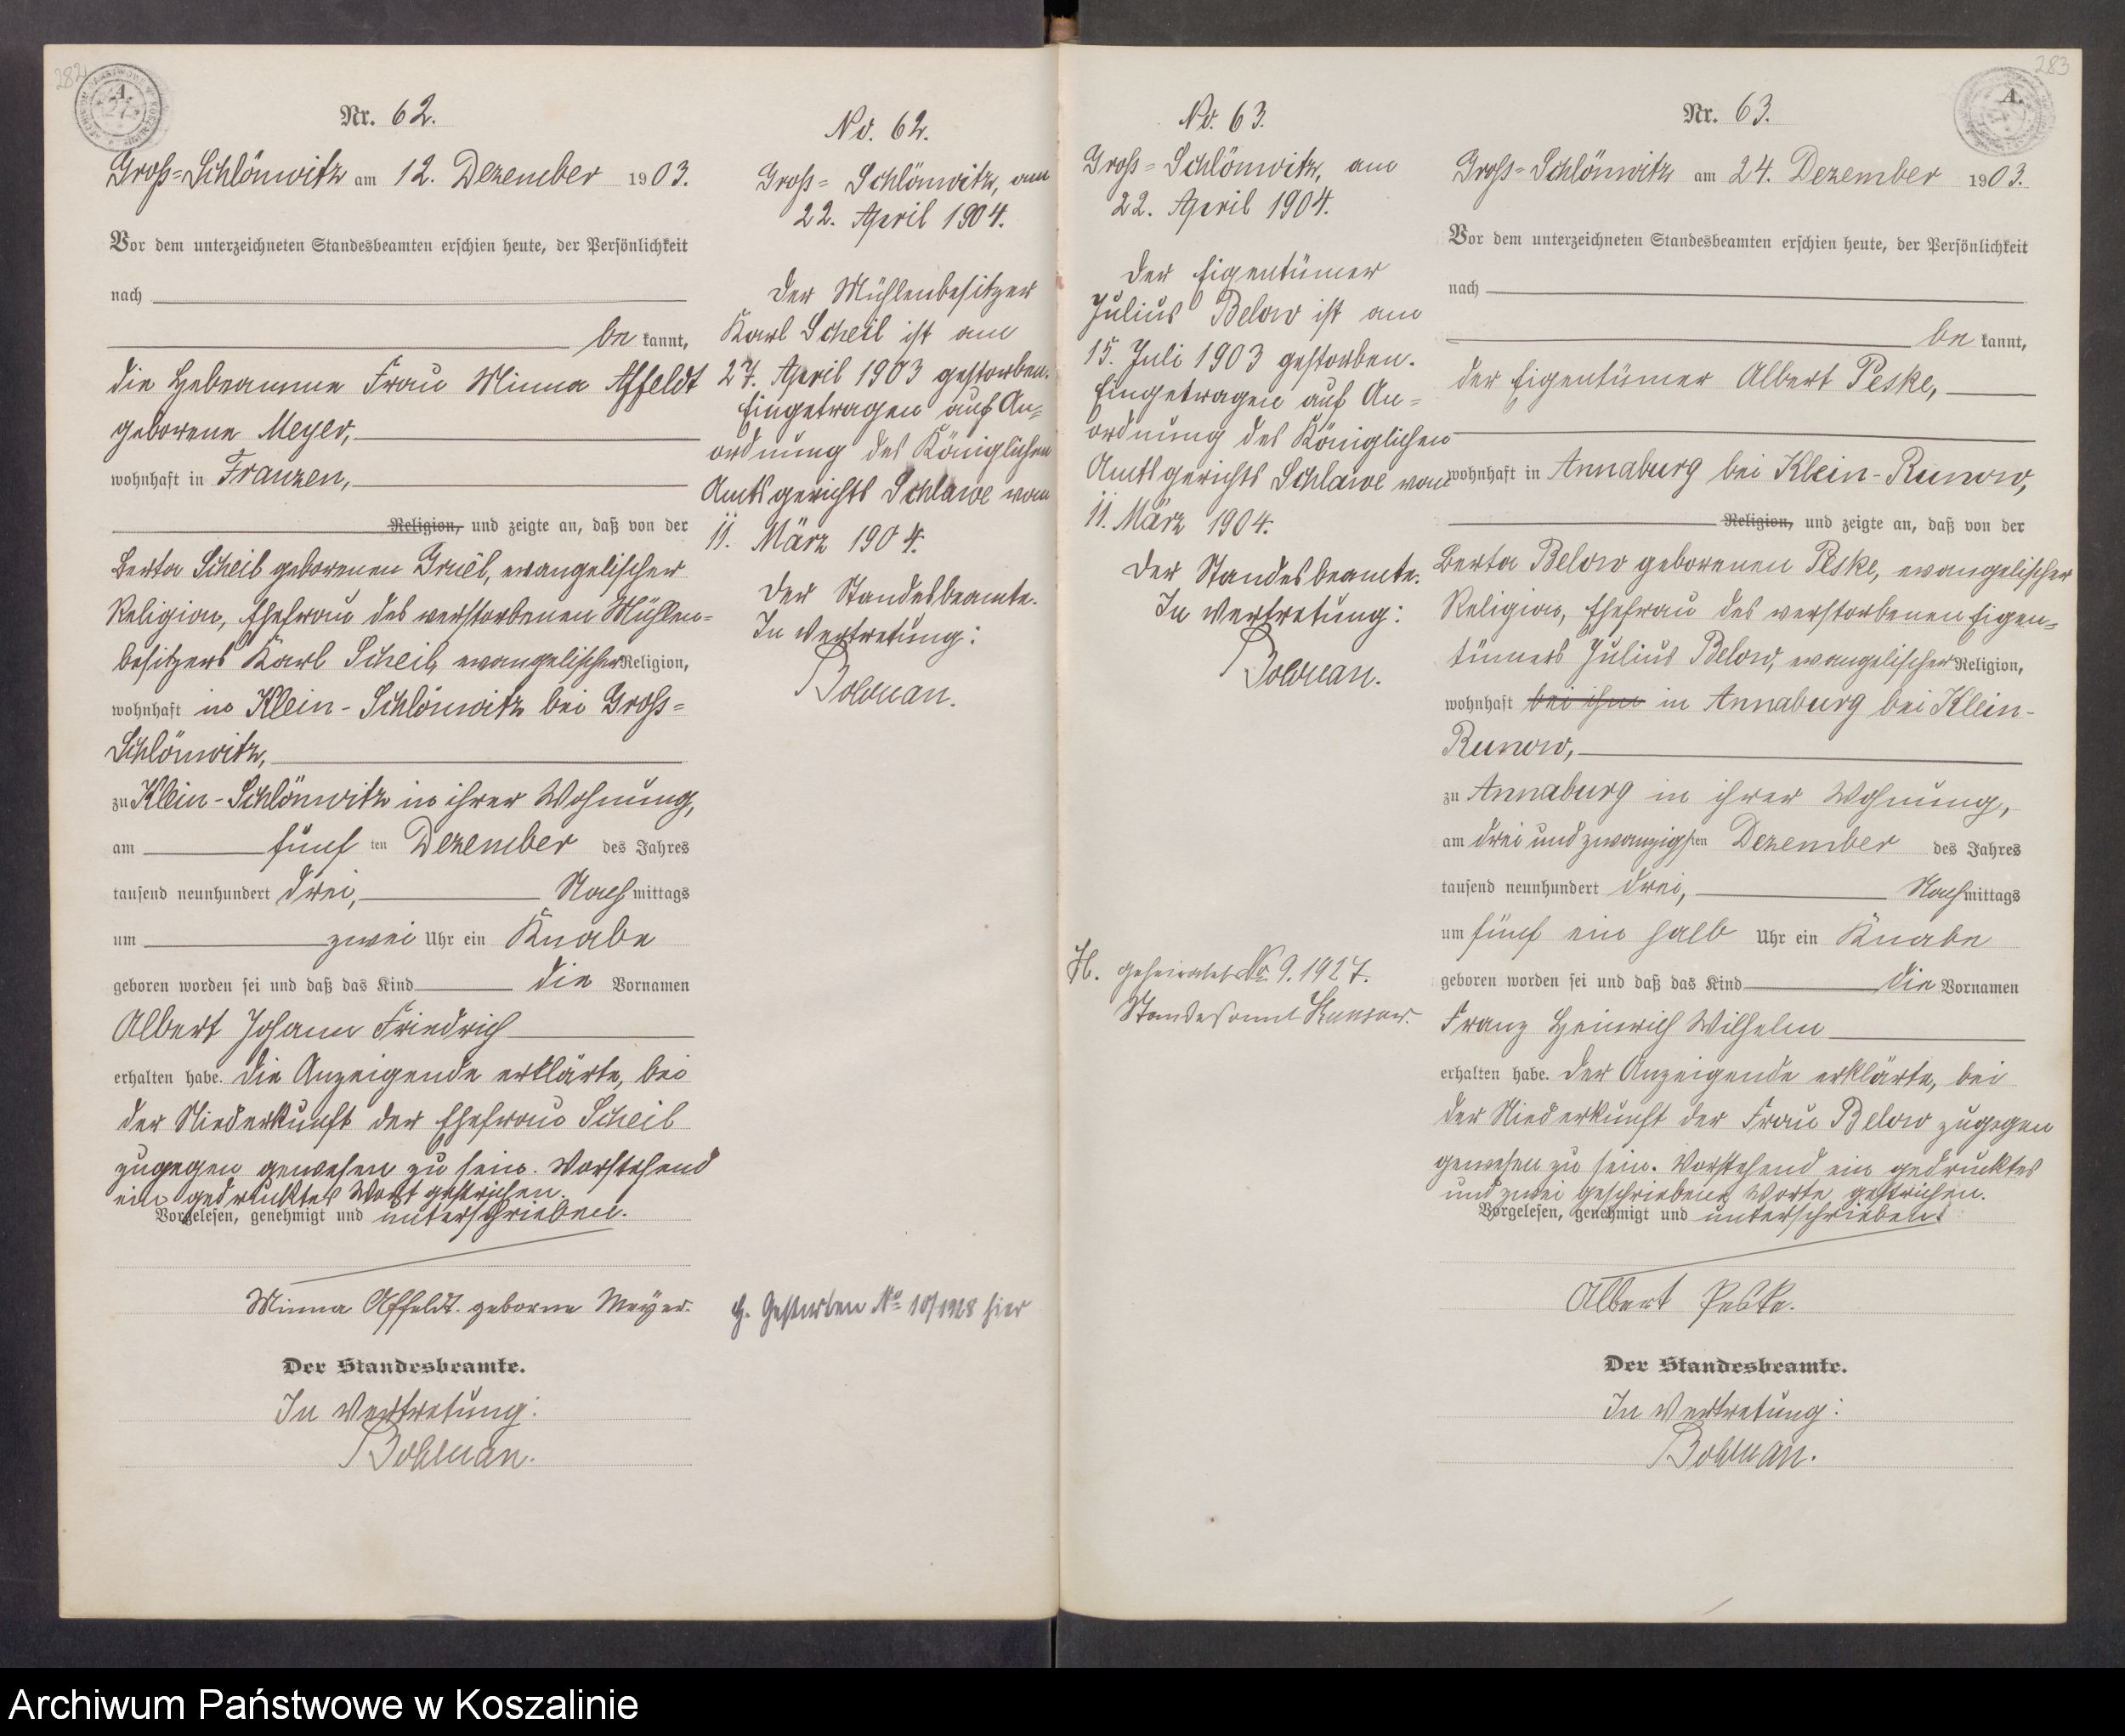 282
A.
Nr. 62.
Groß-Schlönwitz am 12. Dezember 1903.
Vor dem unterzeichneten Standesbeamten erschien heute, der Persönlichkeit
nach
be kannt,
die Hebeamme Frau Minna Affeldt
geborene Meyer,
wohnhaft in Franzen,
Religion, und zeigte an, daß von der
Berta Scheil geborenen Gruel, evangelischer
Religion, Ehefrau des verstorbenen Mühlen=
besitzers Karl Scheil, evangelischer Religion,
wohnhaft in Klein-Schlönwitz bei Groß=
Schlönwitz,
zu Klein-Schlönwitz in ihrer Wohnung,
am fünf ten Dezember des Jahres
tausend neunhundert drei, Nach mittags
um zwei Uhr ein Knabe
geboren worden sei und daß das Kind die Vornamen
Albert Johann Friedrich
erhalten habe. Die Anzeigende erklärte, bei
der Niederkunft der Ehefrau Scheil
zugegen gewesen zu sein. Vorstehend
ein gedrucktes Wort gestrichen.
Vorgelesen, genehmigt und unterschrieben.
Minna Affeldt. geborne Meyer.
Der Standesbeamte.
In Vertretung:
Bohman.
No. 62.
Groß=Schlönwitz, am
22. April 1904.
Der Mühlenbesitzer
Karl Scheil ist am
27. April 1903 gestorben.
Eingetragen auf An=
ordnung des Königlichen
Amtsgerichts Schlawe vom
11. März 1904.
Der Standesbeamte.
In Vertretung:
Bohman.
Gestorben No 10/1928 hier
No. 63.
Groß=Schlönwitz, am
22. April 1904.
Der Eigentümer
Julius Below ist am
15. Juli 1903 gestorben.
Eingetragen auf An=
ordnung des Königlichen
Amtsgerichts Schlawe vom
11. März 1904.
Der Standesbeamte.
In Vertretung:
Bohman.
H. geheiratet No 9. 1927.
Standesamt
283
A.
Nr. 63.
Groß-Schlönwitz am 24. Dezember 1903.
Vor dem unterzeichneten Standesbeamten erschien heute, der Persönlichkeit
nach
be kannt,
der Eigentümer Albert Peske,
wohnhaft in Annaburg bei Klein-Runow,
Religion, und zeigte an, daß von der
Berta Below geborenen Peske, evangelischer
Religion, Ehefrau des verstorbenen Eigen=
tümers Julius Below, evangelischer Religion,
wohnhaft bei ihm in Annaburg bei Klein-
Runow,
zu Annaburg in ihrer Wohnung,
am drei und zwanzigsten Dezember des Jahres
tausend neunhundert drei, Nach mittags
um fünf ein halb Uhr ein Knabe
geboren worden sei und daß das Kind die Vornamen
Franz Heinrich Wilhelm
erhalten habe. Der Anzeigende erklärte, bei
der Niederkunft der Frau Below zugegen
gewesen zu sein. Vorstehend ein gedrucktes
und zwei geschriebene Worte gestrichen.
Vorgelesen, genehmigt und unterschrieben.
Albert Peske.
Der Standesbeamte.
In Vertretung:
Bohman.
Archiwum Państwowe w Koszalinie